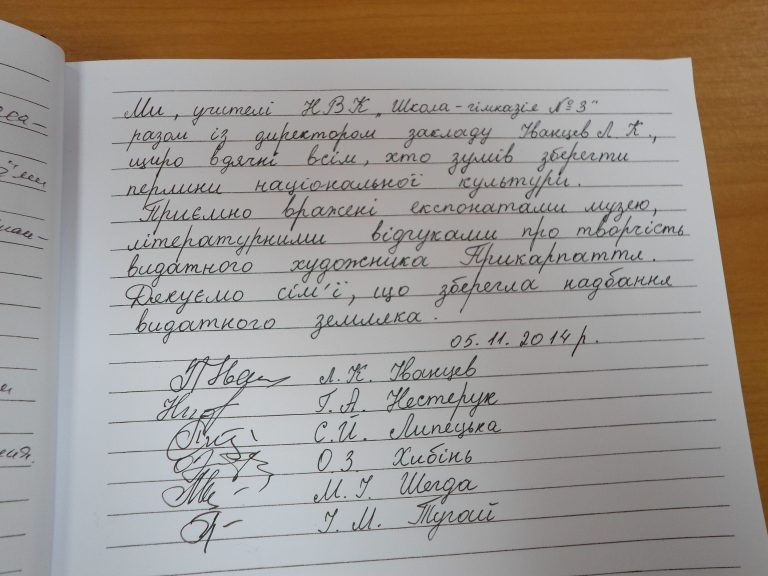 Ми, учителі НВК „Школа-гімназія №3"
разом із директором закладу Іванцев Л.К.,
щиро вдячні всім, хто зумів зберегти
перлини національної культури.
Приємно вражені експонатами музею,
літературними відгуками про творчість
видатного художника Прикарпаття.
Дякуємо сім'ї, що зберегла надбання
видатного земляка.
05.11.2014р.
Л.К. Іванцев
Г.А. Нестерук
С.Й. Липецька
О.З. Хибінь
М.І. Шегда
І.М. Тугай